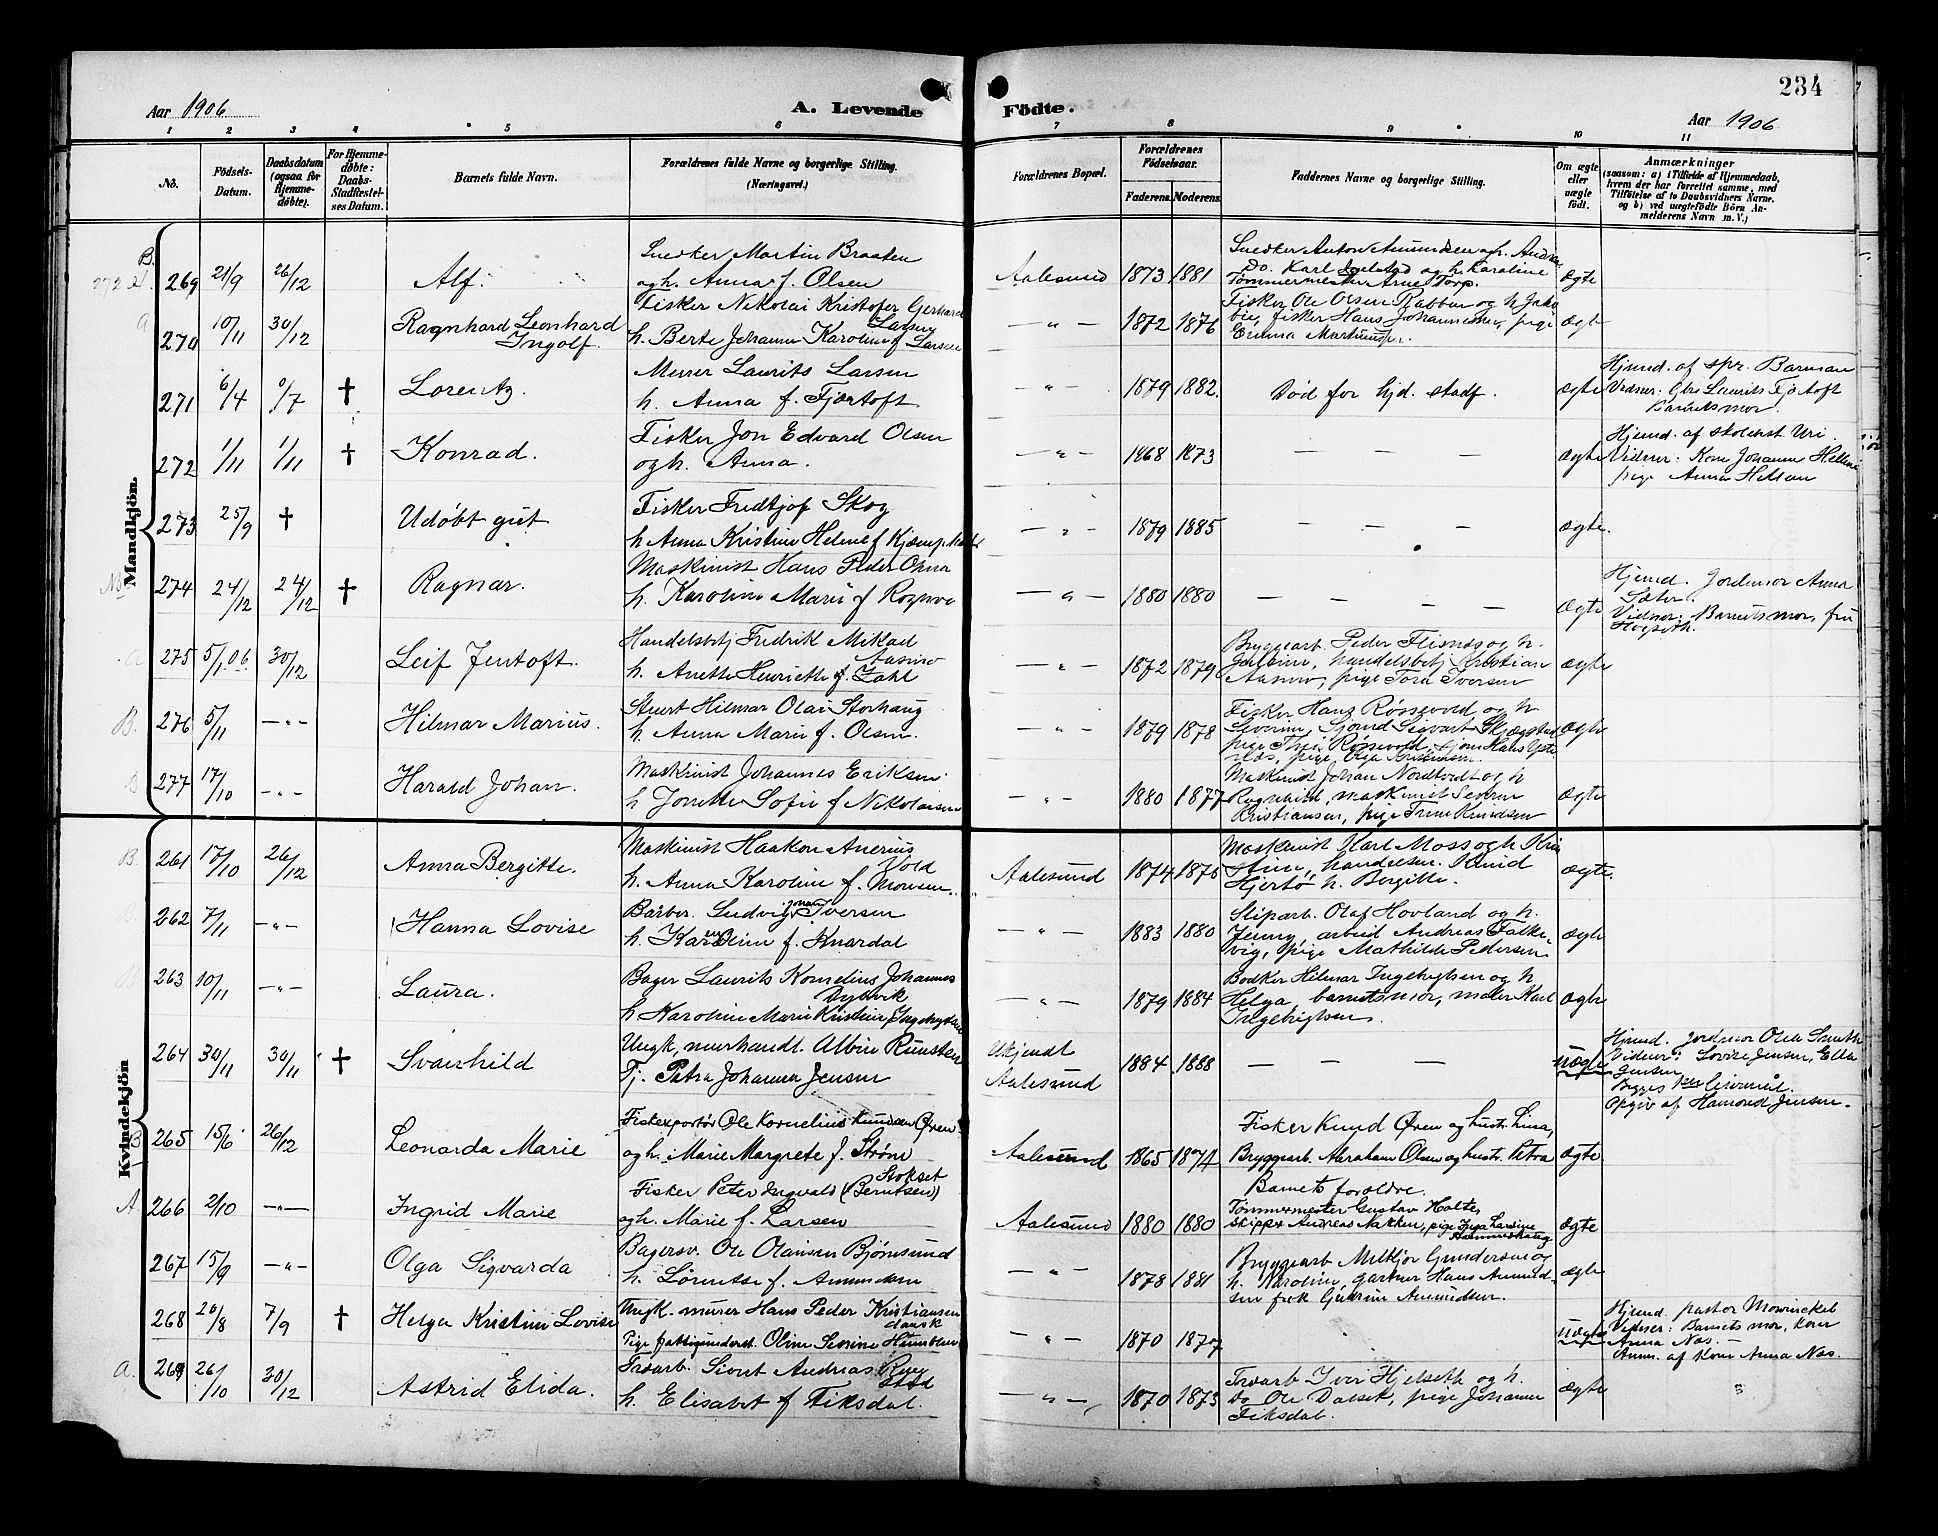 234
Aar 1906.
A. Levende Födte.
Aar 1906.
1 2 3 4 5 6 7 8 9 10 11
No.
Födsels-Datum.
Daabsdatum (ogsaa for Hjemmedöbte).
For Hjemmedöbte: Daabs-Stadfæstelses Datum.
Barnets fulde Navn.
Forældrenes fulde Navne og borgerlige Stilling.
(Næringsvei.)
Forældrenes Bopæl.
Forældrenes Födselsaar.
Faderens. Moderens.
Faddernes Navne og borgerlige Stilling.
Om ægte eller uægte födt.
Anmærkninger
(saasom: a) i Tilfælde af Hjemmedaab, hvem der har forrettet samme, med Tilföielse af to Daabsvidners Navne. og b) ved uægtefödte Börn Anmelderens Navn m. V.)
Mandkjön.
B. 269 21/9 26/12 Alf.
Snedker Martin Braaten
og h. Anna f. Olsen
Aalesund 1873 1881
Snedker Anton Amundsen og fr.
Do. Karl og h. Karoline
Tømmermester Arne Torp.
ægte
A 270 10/11 30/12 Ragnhard Leonhard
Ingolf.
Fisker Nikolai Kristofer Gerhard
Larsen
h. Berte Johanna Karoline f Larsen
— " — 1872 1876
Fisker Ole Olsen Rabben og h
fisker Hans Johannesen, pige
Emma
ægte
271 6/4 /7 † Lorentz.
Murer Laurits Larsen
h. Anna f. Fjærtoft
— " — 1879 1882.
Død før hjd. stadf.
ægte
Hjemd. af spr. Barman
Vidner: Laurits Fjærtoft
Barnets mor.
272 1/11 1/11 † Konrad.
Fisker Jon Edvard Olsen
og h. Anna.
— " — 1868 1873
— — —
ægte
Hjemd. af Uri.
Vidner: Kone Johanna
pige Anna
273 25/9 † Udøbt gut
Fisker Fredtjof Skog
h Anna Kristine Helene f
— " — 1879 1885
— — —
ægte.
274 24/12 24/12 † Ragnar.
Maskinist Hans Peder
h. Karoline Marie f
— " — 1880 1880
— — — —
ægte
Hjemd. Jordmor Anna
Sæter.
Vidner: Barnets mor, fru
A 275 5/1 06. 30/12 Leif Jentoft.
Handelsbetj Fredrik Mikal
Aasmo
h. Anette Henriette f. Zahl
— " — 1872 1879
Bryggearb. Peder Flisnes og h.
handelsbetj Kristian
Aasmo, pige Tora Iversen
ægte
B. 276 5/11 — " — Hilmar Marius.
Stuert Hilmar Olai Storhaug
h. Anna Marie f. Olsen.
— " — 1879 1878
Fisker Hans Røssevold og h
Severine, Sjømd Sigvart
pige Røssevold, sjøm Hans
pige Olga Kristensen.
ægte
B 277 17/10 — " — Harald Johan.
Maskinist Johannes Eriksen
h Jonette Sofie f Nikolaisen
— " — 1880 1877
Maskinist Johan Nordtvedt og h
Ragnhild, maskinist Severin
Kristiansen, pige Trine Knudsen
ægte
Kvindekjön
B. 261 17/10 26/12 Anna Bergitte.
Maskinist Haakon
Vold
h. Anna Karoline f. Monsen.
Aalesund 1874 1875
Maskinist Karl Moss og h
handelsm. Knud
Hjertø h. Bergitte.
ægte.
B. 262 7/11 — " — Hanna Lovise
Barber Ludvig Iversen
h. Karoline f. Knardal
— " — 1883 1880
Sliparb. Olaf Hovland og h.
Jenny, arbeid Andreas Falke-
vig, pige Mathilde Pedersen.
ægte
B 263 10/11 — " — Laura.
Bager Laurits Kornelius Johannes
Dybvik
h Karoline Marie Kristine f
— " — 1879 1884
Bødker Hilmar Ingebrigtsen og h
Helga, barnets mor, maler Karl
Ingebrigtsen.
ægte
264 30/11 30/11 † Svanhild
Ungk, murhandl. Albin Runsten
Tj. Petra Johanna Jensen
Ukjendt
Aalesund 1884 1888
— — —
uægte
Hjemd. Jordmor Olea Smith
Vidner: Lovise Jensen, Ella
Jensen
Opgiv af Jensen.
B 265 15/6 26/12 Leonarda Marie
Fiskexportør Ole Kornelius Knudsen Øren
og h. Marie Margrete f. Strøm
Aalesund 1865 1874
Fisker Knud Øren og hustr. Lina,
Bryggearb. Abraham Olsen og hustr. Petra
Barnets forældre.
ægte.
A 266 2/10 — " — Ingrid Marie
Stokset
Fisker Peter Ingvald (Berntsen)
og h. Marie f. Larsen
Aalesund 1880 1880
Tømmermester Gustav Holte,
skipper Andreas Nakken, pige Inga Larsine
ægte
267 15/9 — " — Olga Sigvarda
Bagersv. Ole Olausen Bjørnsund
h. Lorentse f. Amundsen
— " — 1878 1881
Bryggearb Melkjor Gundersen og
h. Karoline, gartner Hans Amund-
sen frk Gudrun Amundsen.
ægte
268 20/8 7/9 † Helga Kristine Lovise
Ungk. murer Hans Peder Kristiansen
dansk
Pige fattigunderst. Oline Severine
— " — 1870 1877
uægte
Hjemd. pastor Mowinckel
Vidner: Barnets mor, kone
Anna Nas.
Anm. af kone Anna Nas.
A. 269 26/10 30/12 Astrid Elida.
Sivert Andreas
h. Elisabet f Fiksdal.
— " — 1870 1873
Iver Hjelseth og h.
Do Ole Dalset, pige Johanna
Fiksdal.
ægte